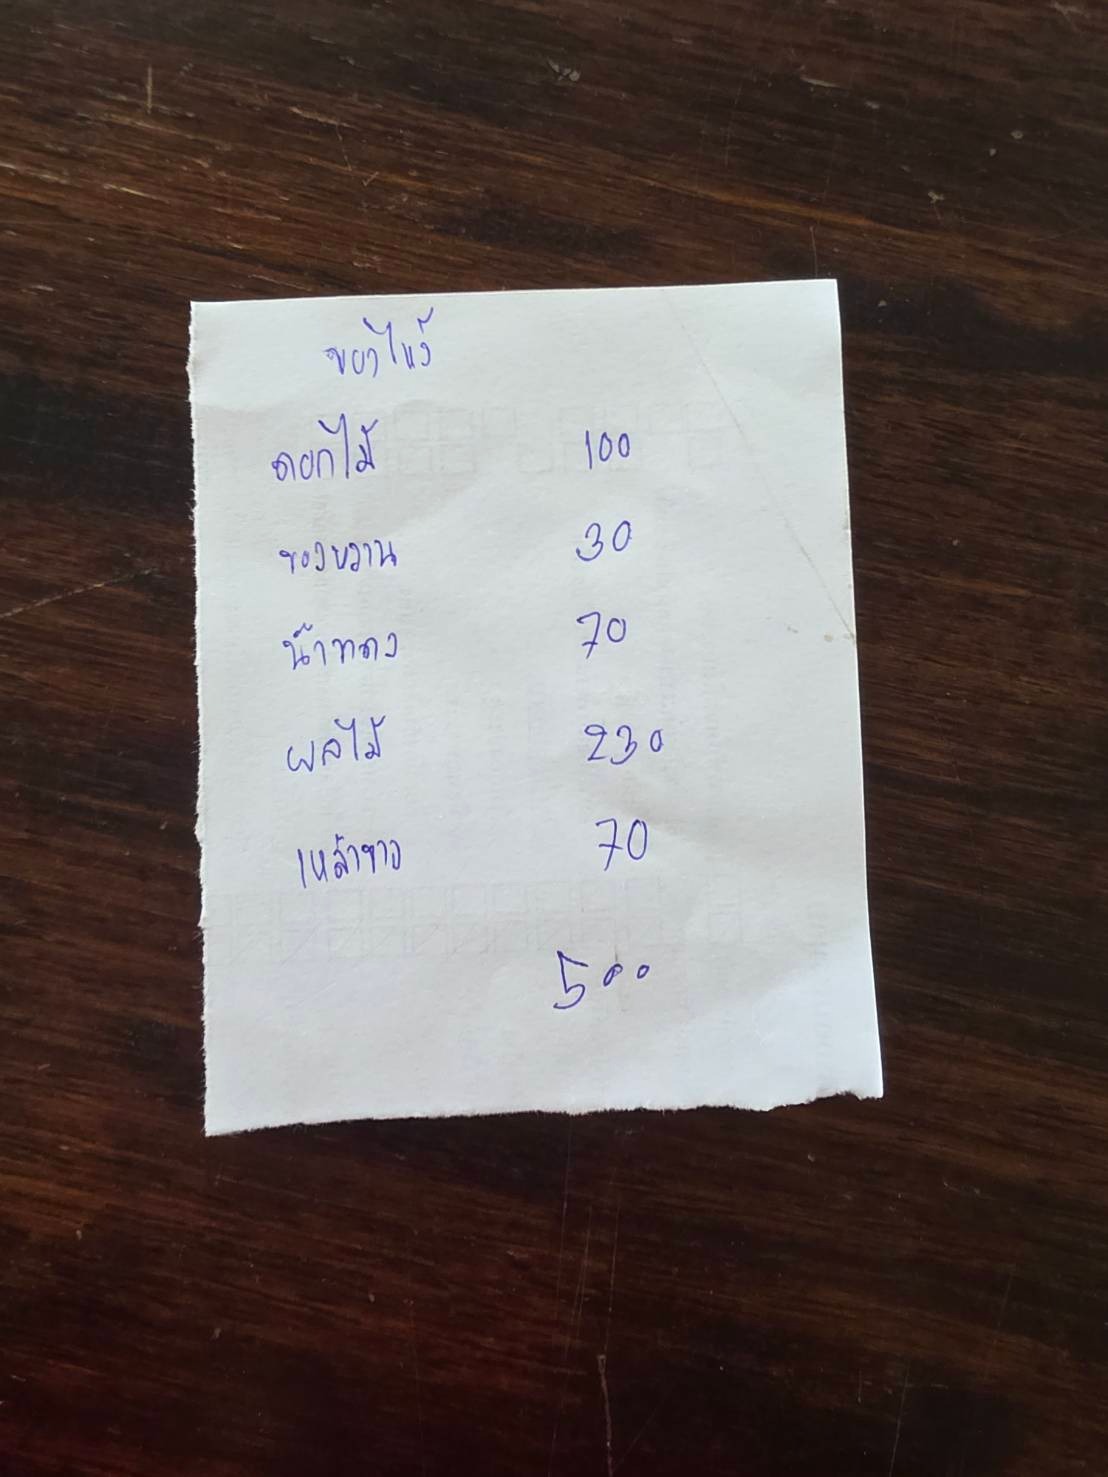 ของไหว้
ดอกไม้ 100
ของหวาน 30
น้ำแดง 70
ผลไม้ 230
เหล้าขาว 70
500